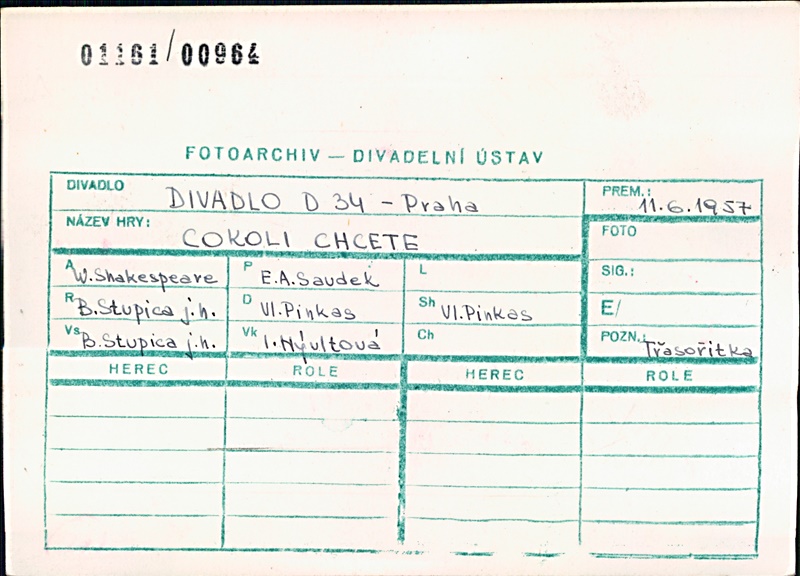 01161/00964
FOTOARCHIV — DIVADELNÍ ÚSTAV
DIVADLO DIVADLO D 34 - Praha
PREM.: 11.6.1957
NÁZEV HRY: COKOLI CHCETE
FOTO
A W. Shakespeare P E.A. Saudek L
SIG.:
R B. Stupica j.h. D Vl. Pinkas Sh Vl. Pinkas
E/
Vs B. Stupica j.h. Vk I. Nývltová Ch
POZN.: Třasořitka
HEREC ROLE HEREC ROLE